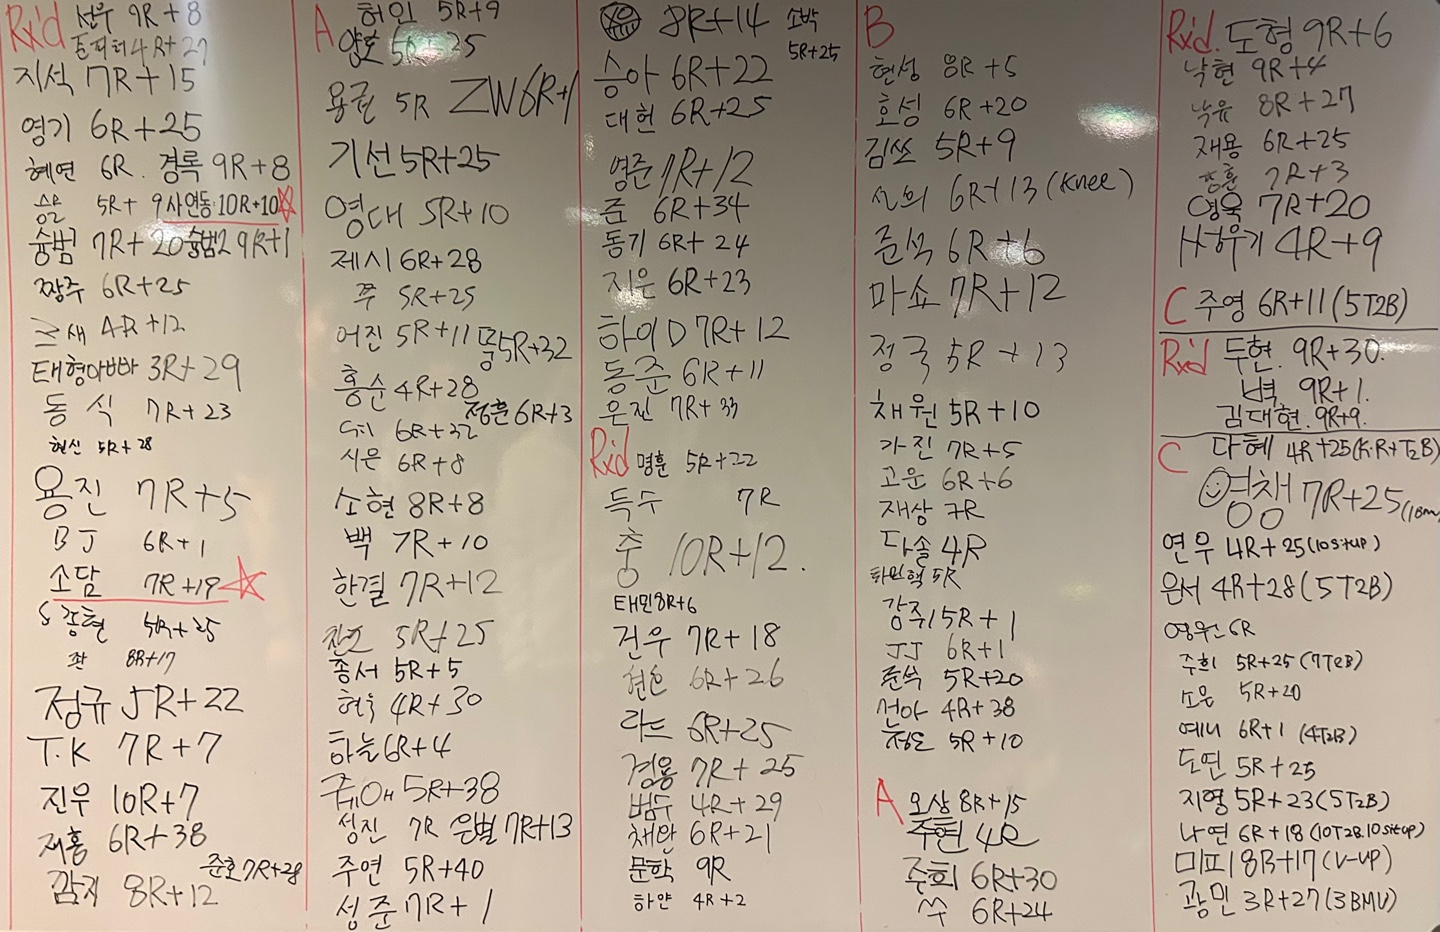 Rx'd 선우 9R+8
4R+27
지석 7R+15
영기 6R+25
혜연 6R. 경록 9R+8
5R+9 사연동:10R+10
슝범 7R+20 슝범2 9R+1
짱주 6R+25
새 4R+12
태형아빠 3R+29
동식 7R+23
현신 5R+28
용진 7R+5
BJ 6R+1
소담 7R+19
S 강현 5R+25
좌 8R+17
정규 5R+22
T.K 7R+7
진우 10R+7
재홍 6R+38
준호 7R+28
감자 8R+12
A 허인 5R+9
양호 5R+25
용권 5R ZW 6R+1
기선 5R+25
영대 5R+10
제시 6R+28
쭈 5R+25
어진 5R+11 뭉 5R+32
홍순 4R+28
정훈 6R+3
6R+32
시은 6R+8
소현 8R+8
백 7R+10
한결 7R+12
5R+25
종서 5R+5
4R+30
하늘 6R+4
5R+38
성진 7R 은별 7R+13
주연 5R+40
성준 7R+1
8R+14 소박
5R+25
승아 6R+22
대헌 6R+25
영준 7R+12
준 6R+34
동기 6R+24
지은 6R+23
하이D 7R+12
동준 6R+11
은진 7R+33
Rx'd 명훈 5R+22
득수 7R
충 10R+12.
태민 8R+6
건우 7R+18
현호 6R+26
라드 6R+25
경용 7R+25
범수 4R+29
채안 6R+21
문학 9R
하얀 4R+2
B
현성 8R+5
호성 6R+20
김쏘 5R+9
선의 6R+13 (Knee)
준석 6R+6
마쇼 7R+12
정국 5R+13
채원 5R+10
가진 7R+5
고운 6R+6
재상 7R
다솔 4R
5R
강주 5R+1
JJ 6R+1
준석 5R+20
선아 4R+38
5R+10
A 오상 8R+15
주현 4R
주희 6R+30
쑤 6R+24
Rx'd. 도형 9R+6
낙현 9R+4
낙유 8R+27
재용 6R+25
창훈 7R+3
영욱 7R+20
4R+9
C 주영 6R+11 (5T2B)
Rx'd 두현. 9R+30.
벽 9R+1.
김대현. 9R+9.
C 다혜 4R+25 (K.R+T2B)
영챙 7R+25
연우 4R+25 (10situp)
은서 4R+28 (5T2B)
영원 6R
주희 5R+25 (7T2B)
소은 5R+20
예니 6R+1 (4T2B)
도연 5R+25
지영 5R+23 (5T2B)
나연 6R+18 (10T2B.10situp)
미피 8R+17 (V-UP)
광민 3R+27 (3BMU)